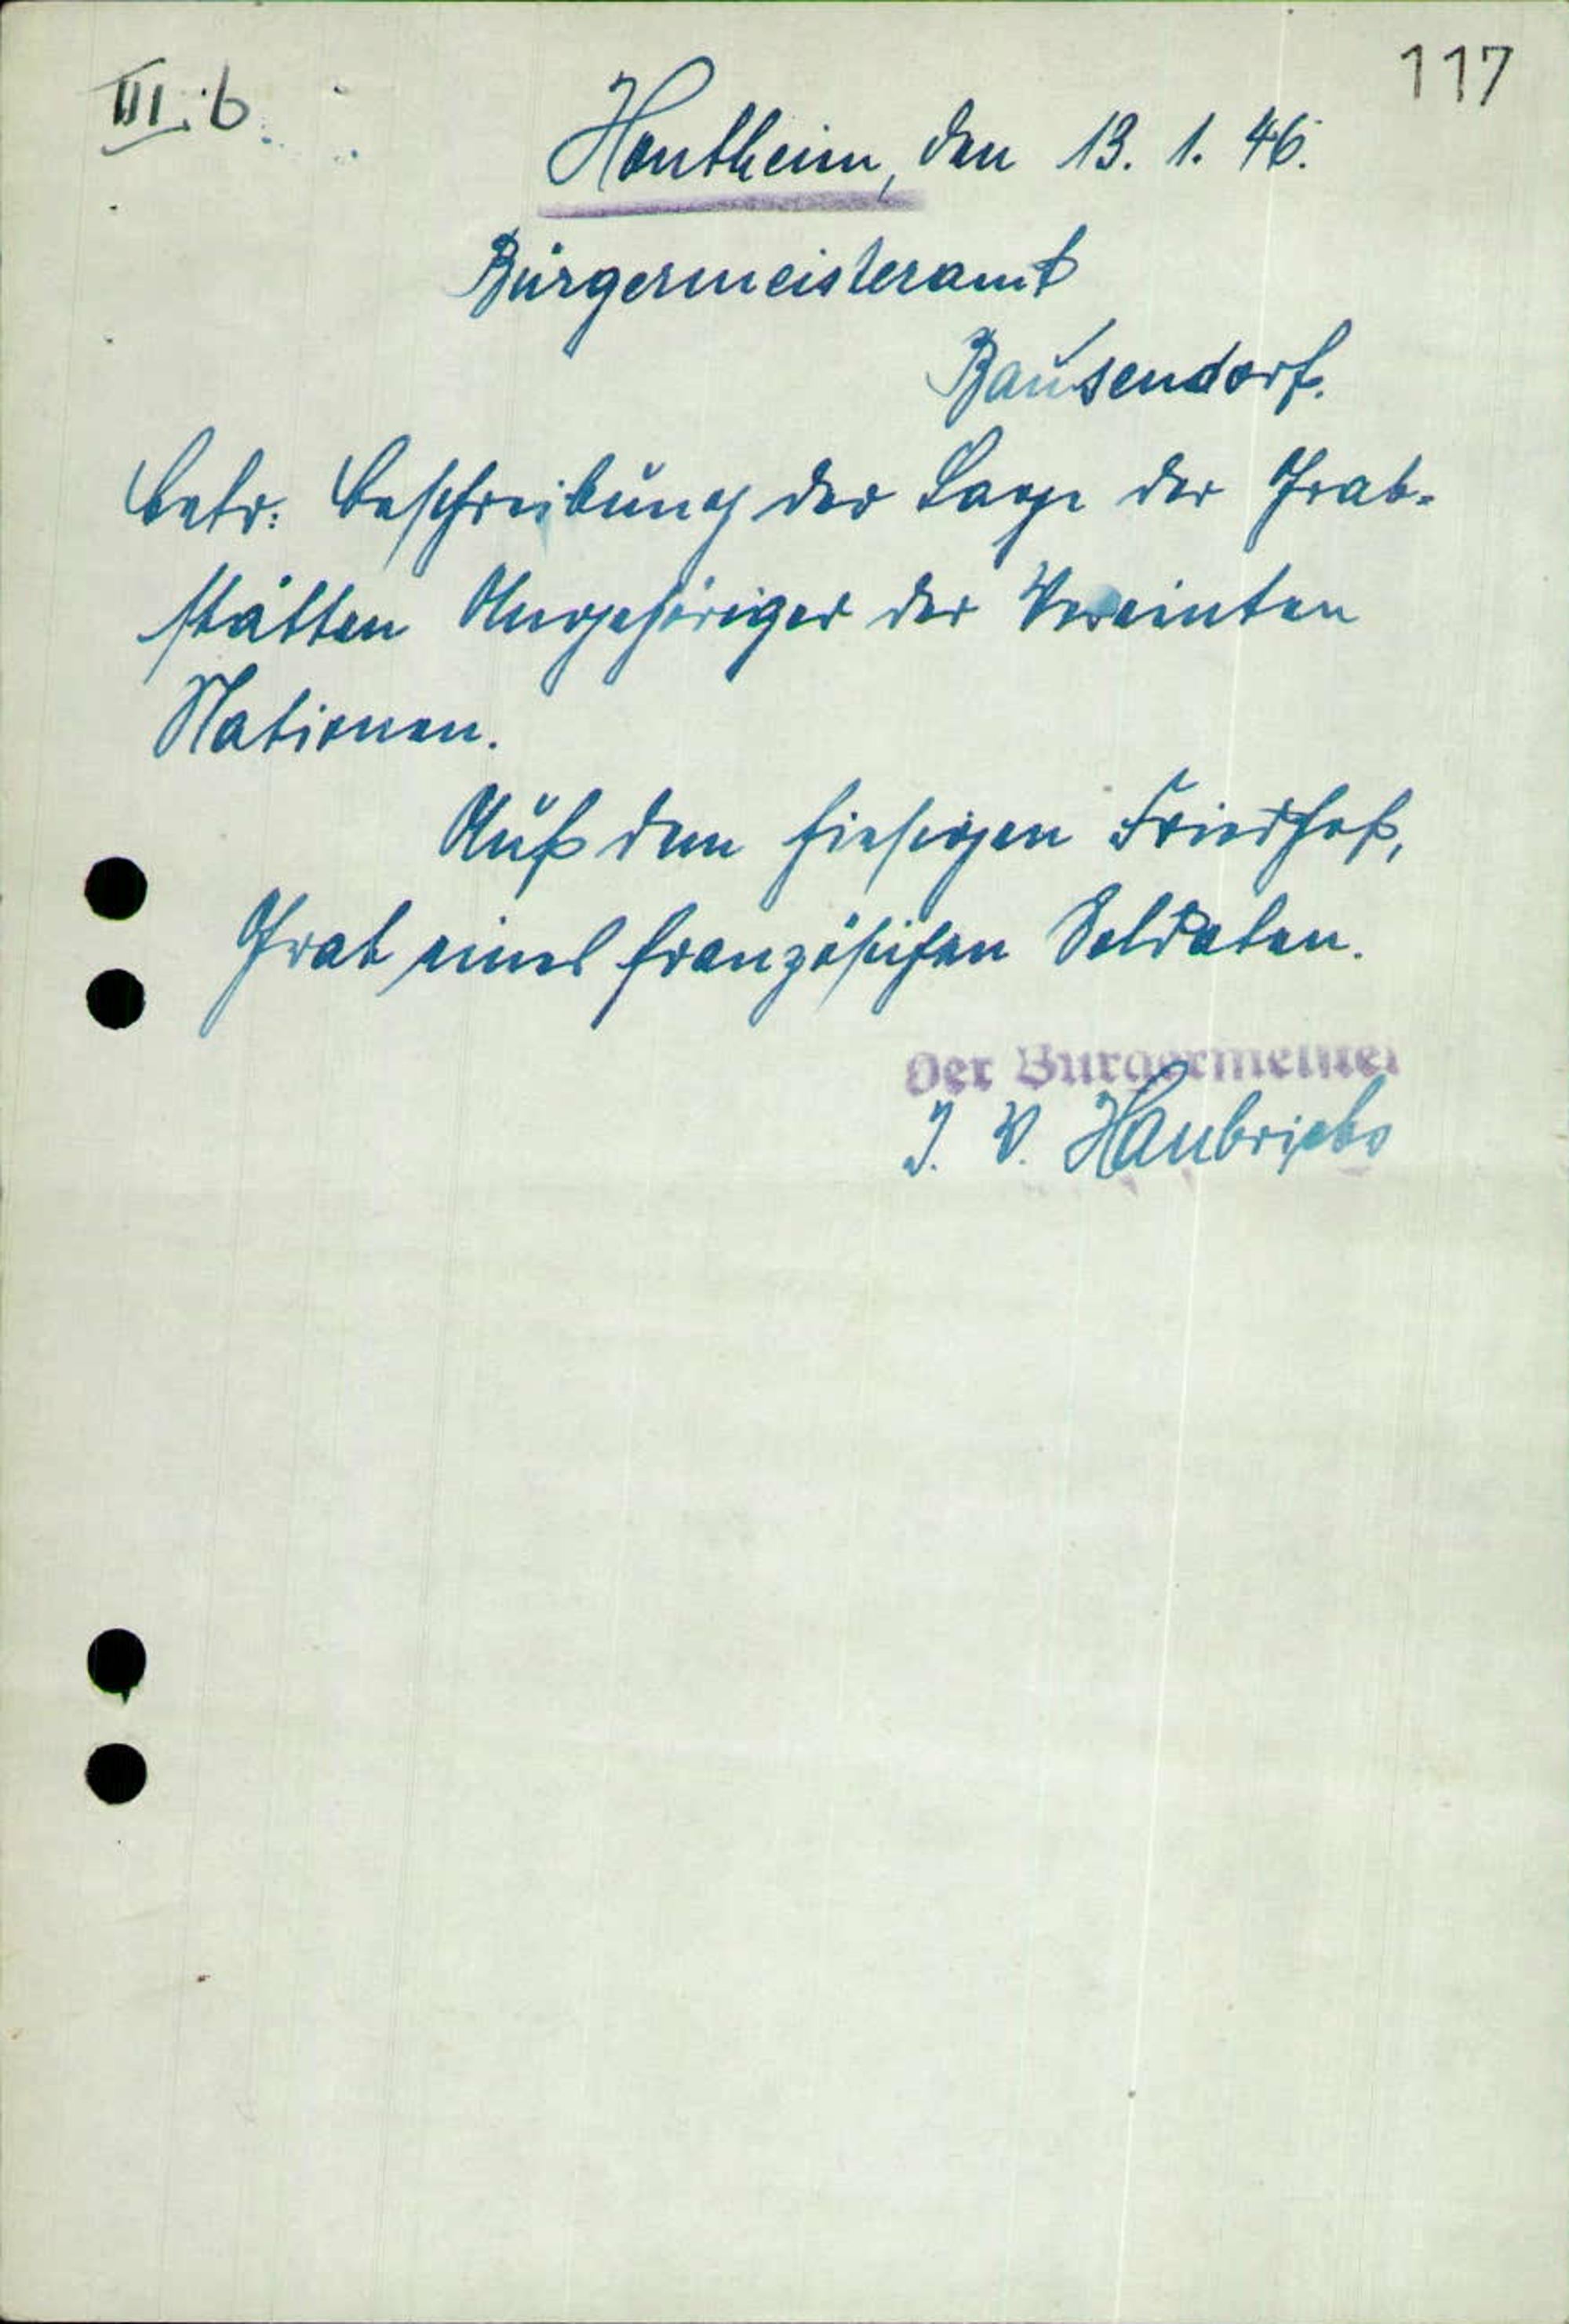 III. b.
117
Hontheim, den 13. 1. 46.
Bürgermeisteramt
Bausendorf.
Betr: Beschreibung der Lage der Grab-
stätten Angehöriger der Vereinten
Nationen.
Auf dem hiesigen Friedhof,
Grab eines französischen Soldaten.
Der Bürgermeister
J. V. Haubrichs